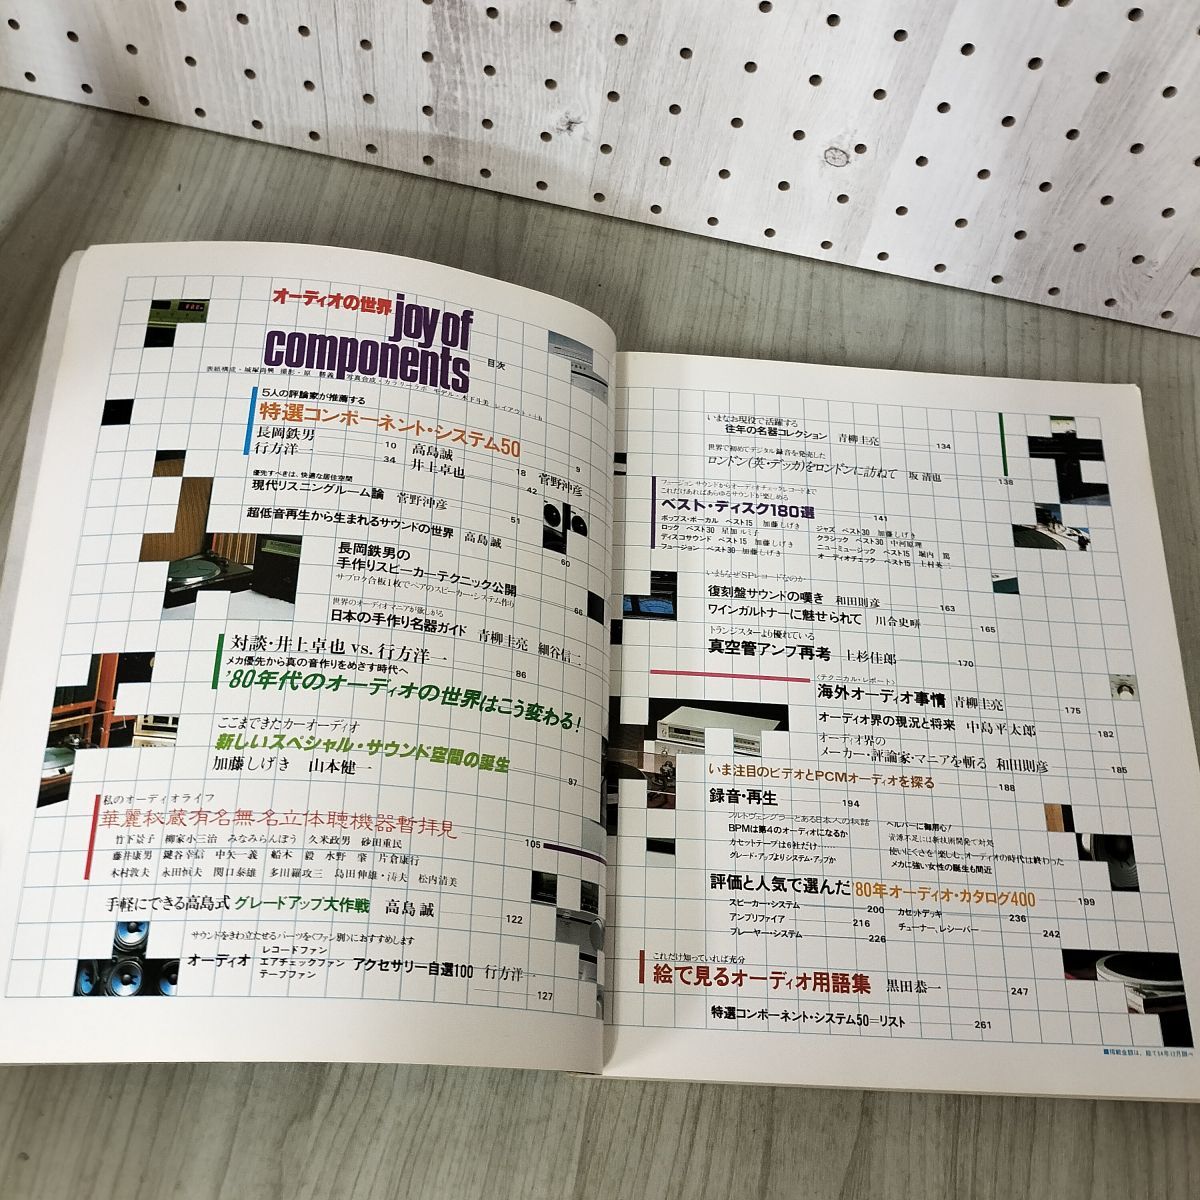 オーディオの世界
joy of
components
目次
5人の評論家が推薦する
特選コンポーネント・システム50
9
長岡鉄男 10 高島誠 18 菅野沖彦
行方洋一 34 井上卓也 42
優先すべきは、快適な居住空間
現代リスニングルーム論 菅野沖彦 51
超低音再生から生まれるサウンドの世界 高島誠 60
長岡鉄男の
手作りスピーカーテクニック公開
サブロク合板1枚でペアのスピーカー・システム作り 66
世界のオーディオマニアが欲しがる
日本の手作り名器ガイド 青柳圭亮 細谷信二
対談・井上卓也 vs. 行方洋一 86
メカ優先から真の音作りをめざす時代へ
'80年代のオーディオの世界はこう変わる!
ここまできたカーオーディオ
新しいスペシャル・サウンド空間の誕生
加藤しげき 山本健一 97
私のオーディオライフ
華麗秘蔵有名無名立体聴機器暫拝見 105
竹下景子 柳家小三治 みなみらんぼう 久米政男 砂田重民
藤井康男 鍵谷幸信 中矢一義 船木 毅 水野 肇 片倉康行
木村敦夫 永田恒夫 関口泰雄 多川羅攻三 島田伸雄・涛夫 松内清美
手軽にできる高島式 グレードアップ大作戦 高島誠 122
サウンドをきわ立たせるパーツを〈ファン別〉におすすめします
オーディオ
レコードファン
エアチェックファン
テープファン
アクセサリー自選100 行方洋一 127
いまなお現役で活躍する
往年の名器コレクション 青柳圭亮 134
世界で初めてデジタル録音を発売した
ロンドン(英・デッカ)をロンドンに訪ねて 坂 清也 138
フュージョンサウンドからオーディオチェックレコードまで
これだけあればあらゆるサウンドが楽しめる
ベスト・ディスク180選 141
ポップス・ボーカル ベスト15 加藤しげき ジャズ ベスト30 加藤しげき
ロック ベスト30 星加ルミ子 クラシック ベスト30 中河原理
ディスコサウンド ベスト15 加藤しげき ニューミュージック ベスト15 堀内 篤
フュージョン ベスト30 加藤しげき オーディオチェック ベスト15 上村英二
いまもなぜSPレコードなのか
復刻盤サウンドの嘆き 和田則彦 163
ワインガルトナーに魅せられて 川合史畊 165
トランジスターより優れている
真空管アンプ再考 上杉佳郎 170
〈テクニカル・レポート〉
海外オーディオ事情 青柳圭亮 175
オーディオ界の現況と将来 中島平太郎 182
オーディオ界の
メーカー・評論家・マニアを斬る 和田則彦 185
いま注目のビデオとPCMオーディオを探る 188
録音・再生 194
フルトヴェングラーとある日本人の秘話
BPMは第4のオーディオになるか
カセットテープは6社だけ……
グレード・アップよりシステム・アップか
ヘルパーに御用心!
資源不足には新技術開発で対処
使いにくさを「楽しむ」オーディオの時代は終わった
メカに強い女性の誕生も間近
評価と人気で選んだ'80年オーディオ・カタログ400 199
スピーカー・システム 200 カセットデッキ 236
アンプリファイア 216 チューナー、レシーバー 242
プレーヤー・システム 226
これだけ知っていれば充分
絵で見るオーディオ用語集 黒田恭一 247
特選コンポーネント・システム50=リスト 261
■掲載金額は、総て54年12月調べ